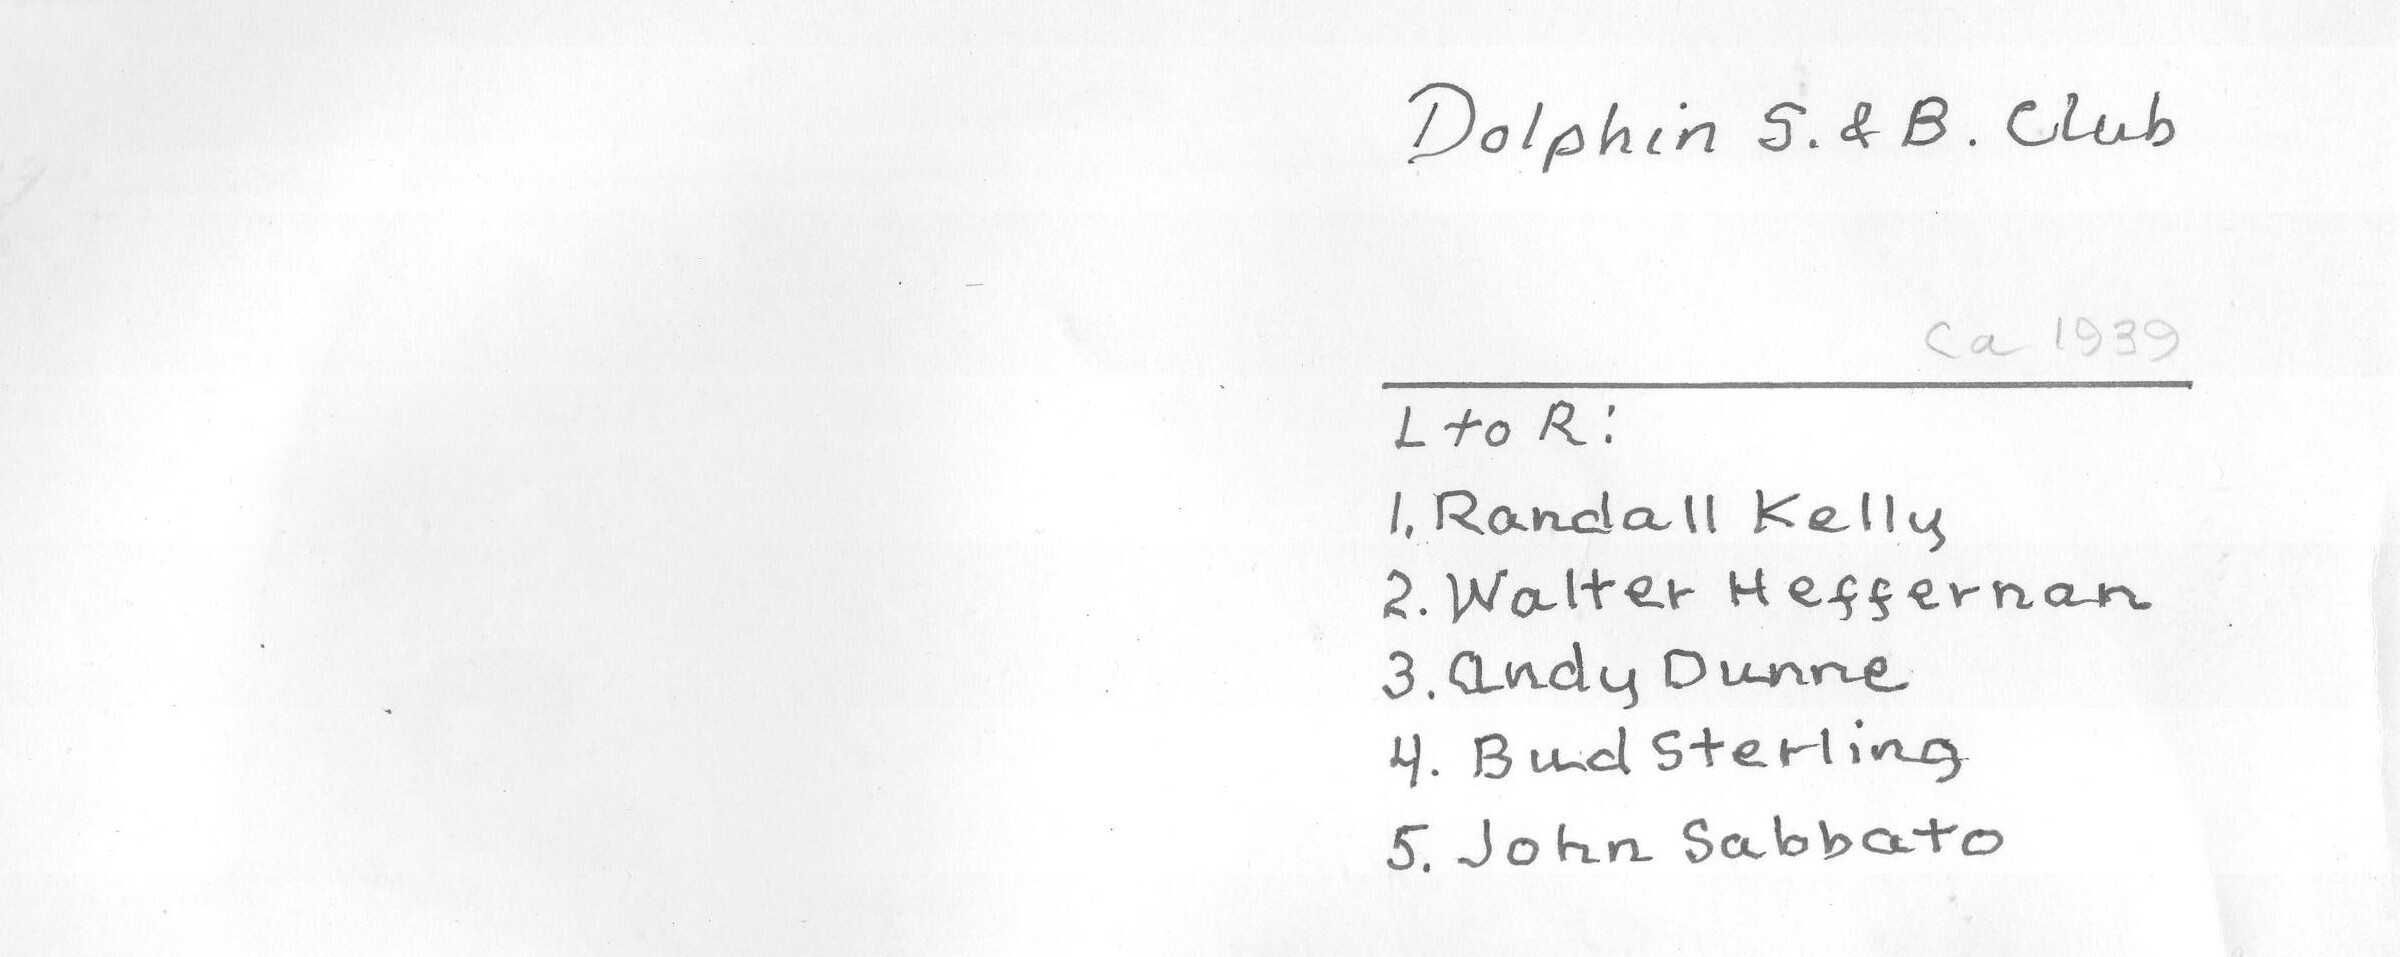 Dolphin S. & B. Club
Ca 1939
L to R:
1. Randall Kelly
2. Walter Heffernan
3. Andy Dunne
4. Bud Sterling
5. John Sabbato